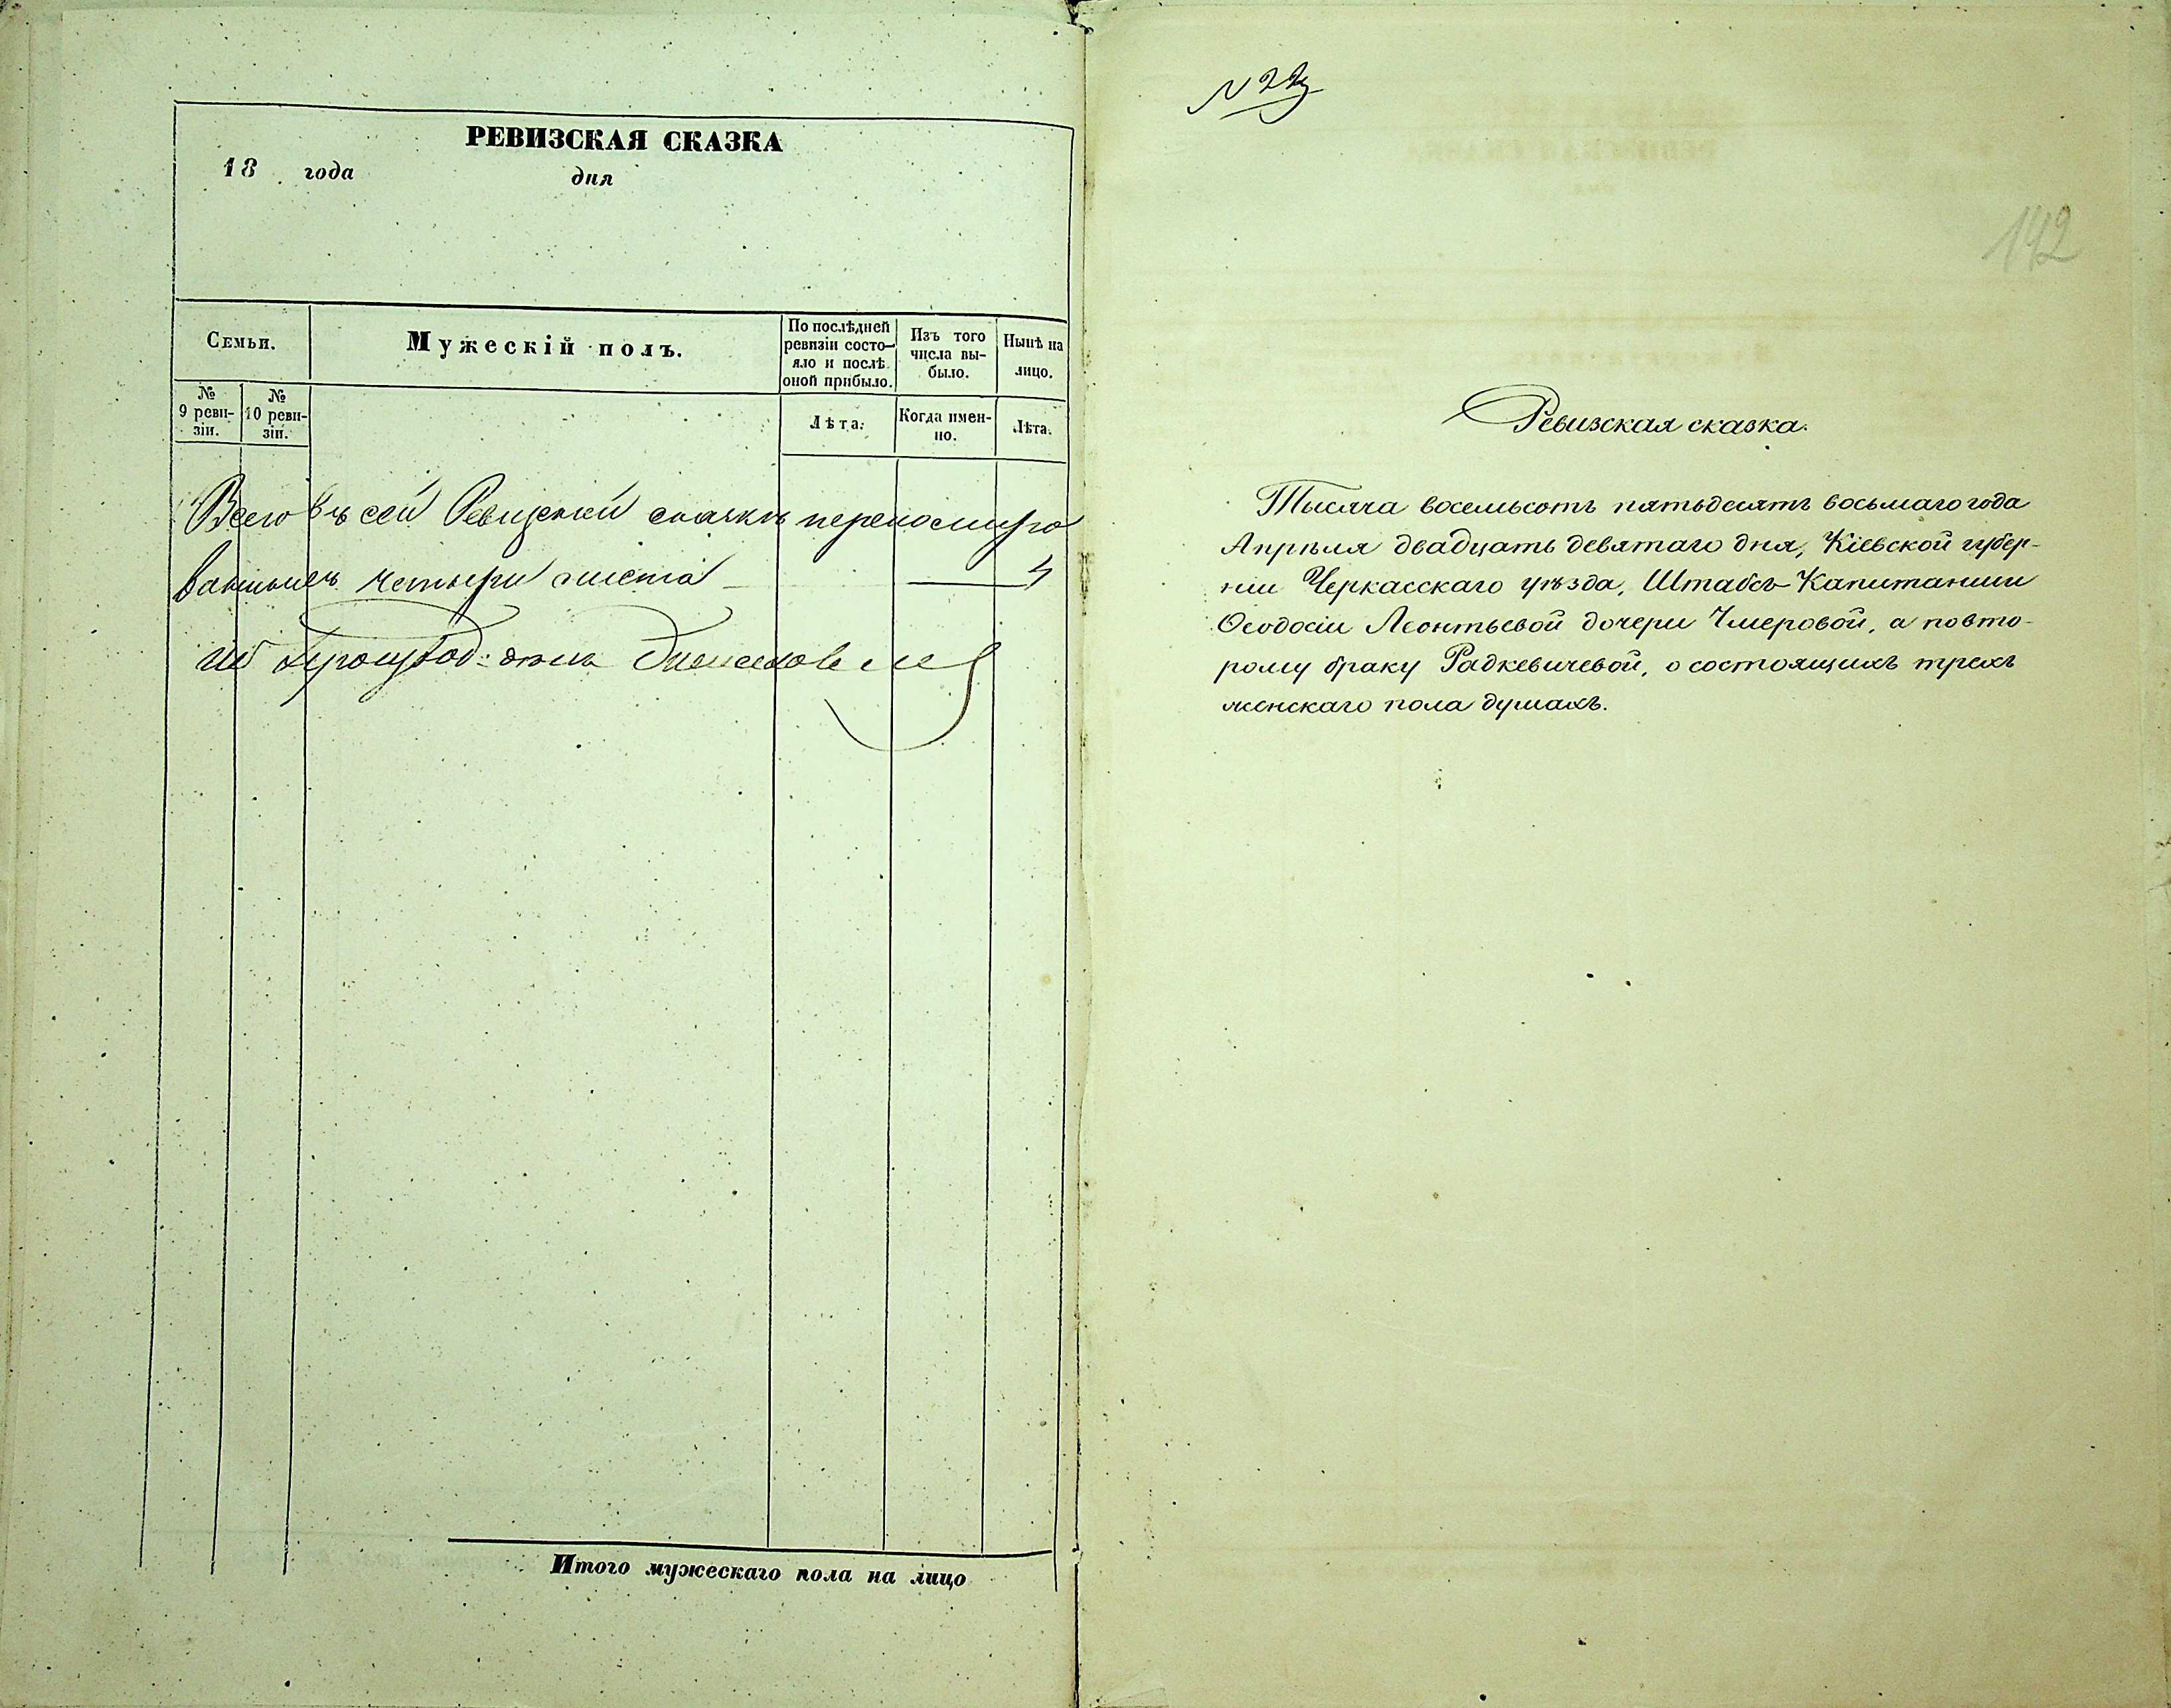 РЕВИЗСКАЯ СКАЗКА
18 года дня
Семьи.
Мужескій полъ.
По послѣдней ревизіи состо-яло и послѣ оной прибыло.
Изъ того числа вы-было.
Нынѣ на лицо.
№ 9 реви-зіи.
№ 10 реви-зіи.
Лѣта.
Когда имен-но.
Лѣта.
Всего въ сей Ревизской сказкѣ перенумеро
ванныхъ четыри листа — 4
Итого мужескаго пола на лицо
N 22
142
Ревизская сказка.
Тысяча восемьсотъ пятьдесятъ восьмаго года
Апрѣля двадцать девятаго дня, Кіевской губер-
ніи Черкасскаго уѣзда, Штабсъ-Капитанши
Ѳеодосіи Леонтьевой дочери Чмеровой, а повто-
рому браку Радкевичевой, о состоящихъ трехъ
женскаго пола душахъ.